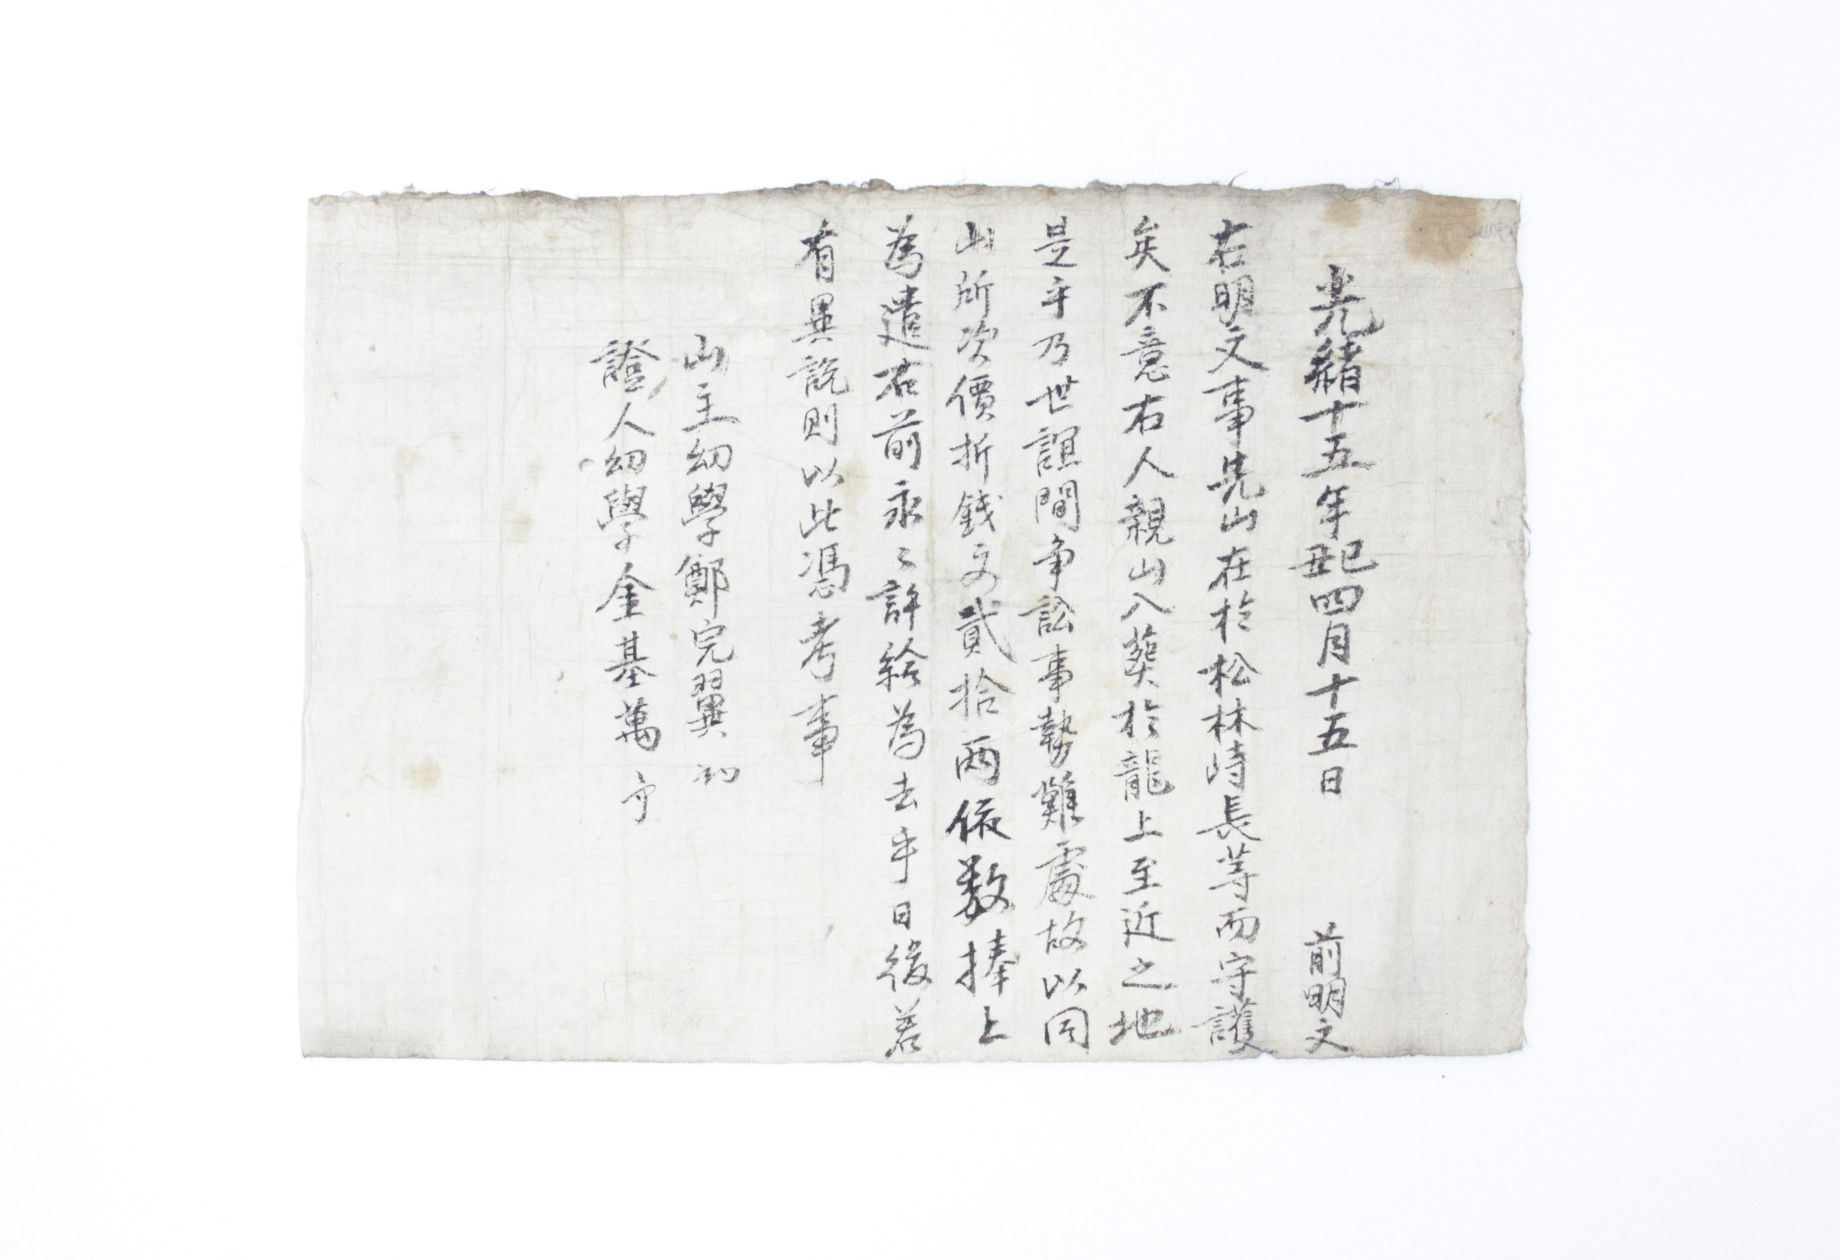 光緖十五年己丑四月十五日 前明文
右明文事先山在於松林峙長等而守護
矣不意右人親山入葬於龍上至近之地
是乎乃世誼間爭訟事勢難處故以同
山所次價折錢文貳拾兩依數捧上
爲遣右前永々許給爲去乎日後若
有異說則以此憑考事
山主幼學鄭完翼
證人幼學金基萬